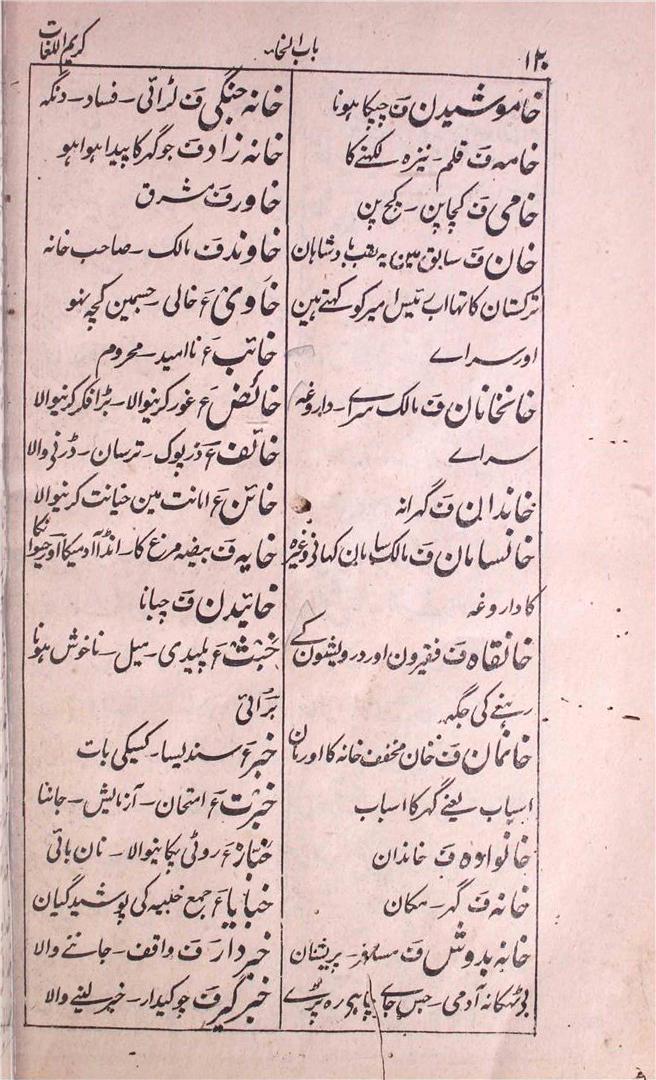 ۱۲۰
باب الخاء
کریم اللغات
خاموشیدن ف چپکا ہونا
خامہ ف قلم ۔ نیزہ لکھنے کا
خامی ف کچاپن ۔ کج پن
خان ف سابق مین یہ لقب بادشاہان
ترکستان کا تھا اب رئیس امیر کو کہتے ہین
اور سراے
خانخانان ف مالک سراے ۔ داروغہ
سراے
خاندان ف گہرانہ
خانسامان ف مالک سامان کہانے وغیرہ
کا داروغہ
خانقاہ ف فقیرون اور درویشون کے
رہنے کی جگہ
خانمان ف خان مخفف خانہ کا اور مان
اسباب یعنے گہر کا اسباب
خانوادہ ف خاندان
خانہ ف گہر ۔ مکان
خانہ بدوش ف مسافر ۔ پریشان
بے ٹھکانہ آدمی ۔ جس جاے پاہی رہ پڑے
خانہ جنگی ف لڑائی ۔ فساد ۔ دنگہ
خانہ زاد ف جو گہر کا پیدا ہوا ہو
خاور ف مشرق
خاوند ف مالک ۔ صاحب خانہ
خاوی ع خالی ۔ جسمین کچہ نہو
خائب ع ناامید ۔ محروم
خائض ع غور کرنیوالا ۔ بڑا فکر کرنیوالا
خائف ع ڈرپوک ۔ ترسان ۔ ڈرنیوالا
خائن ع امانت مین خیانت کرنیوالا
خایہ ف بیضہ مرغ کا ۔ انڈا آدمیکا اور حیوانکا
خائیدن ف چبانا
خبث ع پلیدی ۔ میل ۔ ناخوش ہونا
برائی
خبر ع سندیسا ۔ کسیکی بات
خبرت ع امتحان ۔ آزمایش ۔ جاننا
خباز ع روٹی پکانیوالا ۔ نان بائی
خبایا ع جمع خبیہ کی پوشیدگیان
خبردار ف واقف ۔ جاننے والا
خبرگیر ف چوکیدار ۔ خبر لینے والا